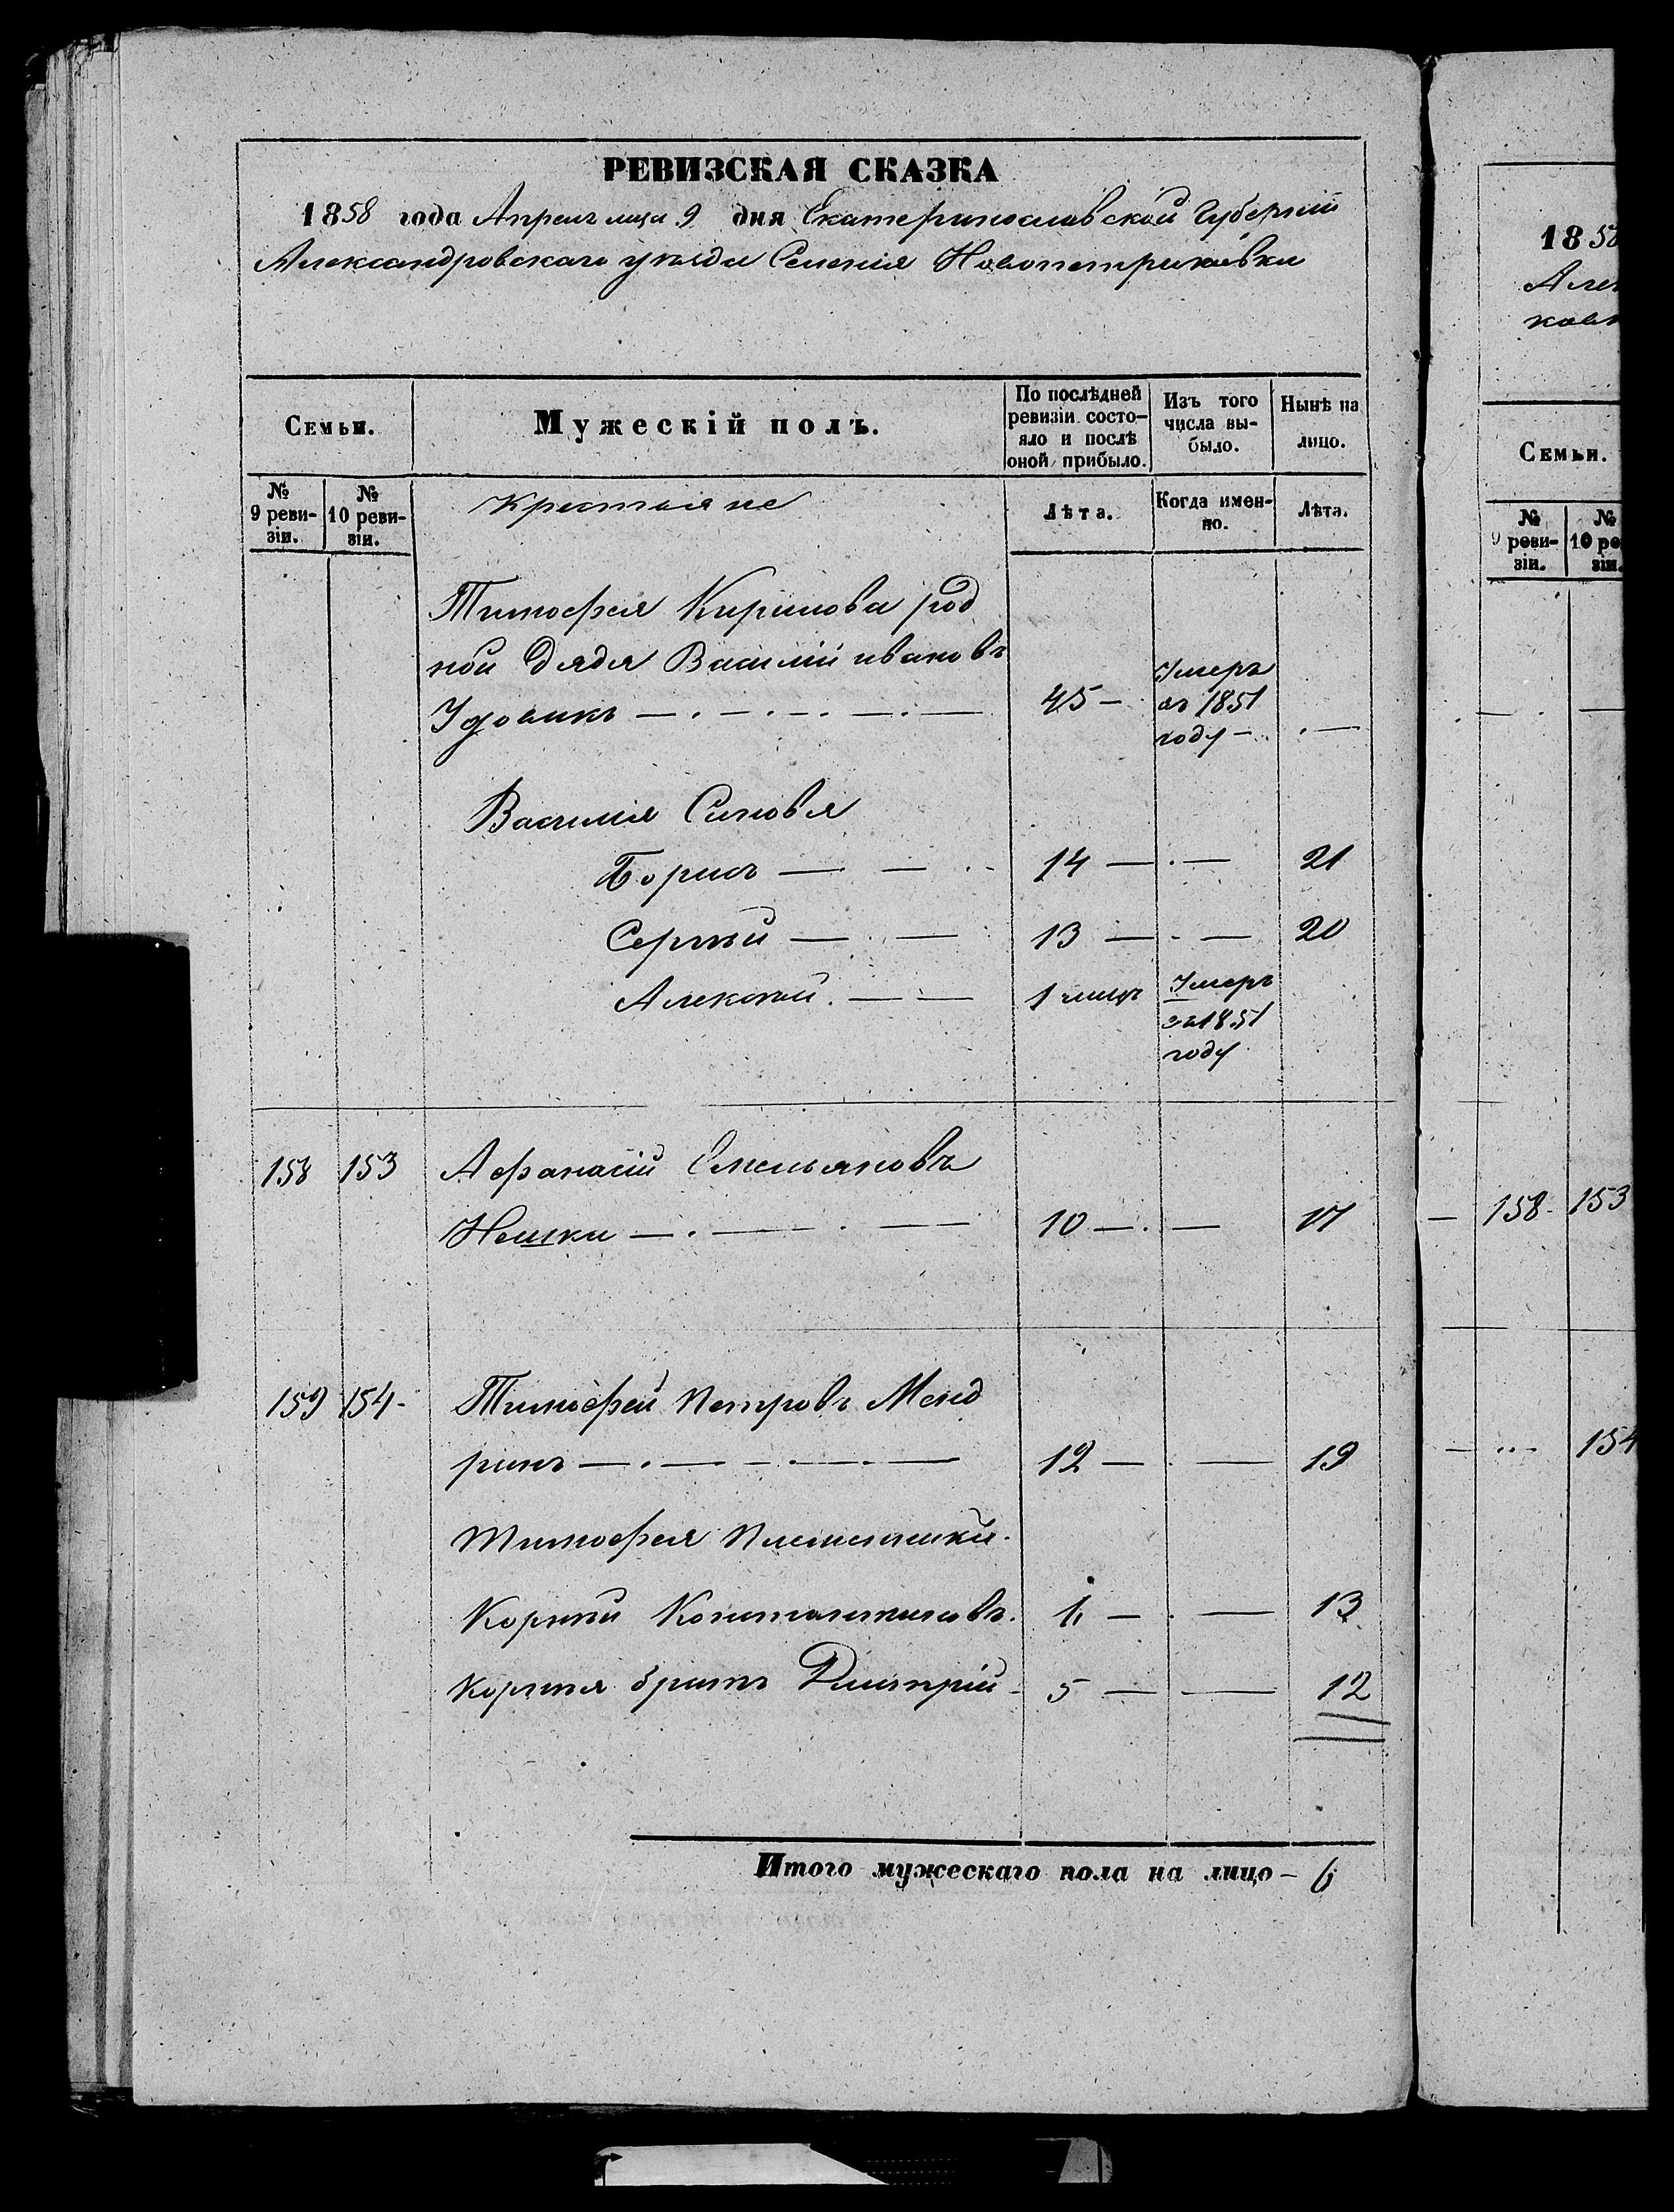 РЕВИЗСКАЯ СКАЗКА
1858 года Апреля мца 9 дня Екатеринославской Губерніи
Александровскаго уѣзда Селенія Новопетриковки
Семьи. Мужескій полъ. По послѣдней ревизіи состояло и послѣ оной прибыло. Изъ того числа выбыло. Нынѣ на лицо.
№ 9 ревизіи. № 10 ревизіи. Крестьяне Лѣта. Когда именно. Лѣта.
Тимофея Кирилова род
ной дядя Василій ивановъ
Удовикъ — 45 — Умеръ въ 1851 году — —
Василія Синовья
Борисъ — 14 — — 21
Сергѣй — 13 — — 20
Алексѣй — 1 Умеръ въ 1851 году
158 153 Афанасій Емельяновъ
Нешка — 10 — — 17
159 154 Тимофей Петровъ Менд
ринъ — 12 — — 19
Тимофея Племяники
Корнѣй Константиновъ — — 13
Корнѣя братъ Дмитрій 5 — — 12
Итого мужескаго пола на лицо — 6
1858
Алек
ковк
Семьи.
№ 9 ревизіи. № 10 ре зіи.
— —
— 158 153
— 154